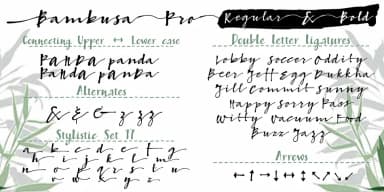 Bambusa Pro Regular & Bold
Connecting Upper ↔ Lower case
Panda panda
Panda panda
Alternates
& & & z zz
Stylistic Set 11
a b c d e f g
h i j k l m
n o p q r s t u
v w x y z
Double Letter Ligatures
Lobby Soccer Oddity
Beer Jeff Egg Dukkha
Jill Commit Sunny
Happy Sorry Pass
Witty Vacuum Food
Buzz Jazz
Arrows
← ↑ → ↓ ↔ ↕ ↖ ↗ ↘ ↙